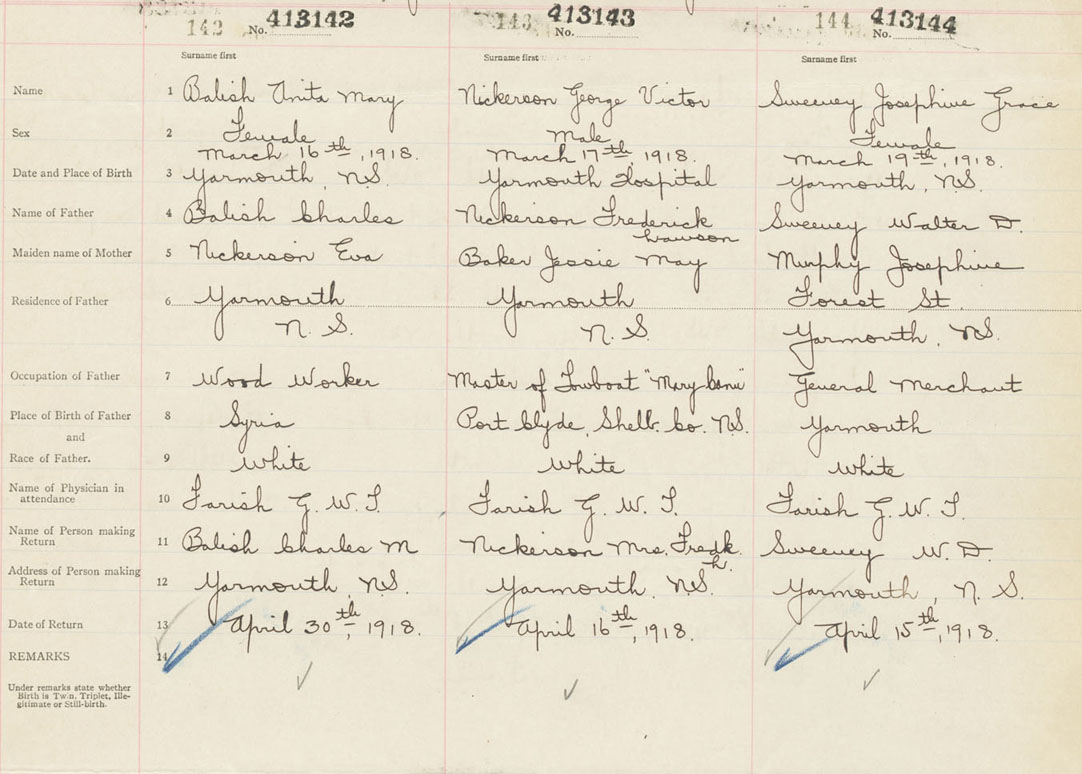 142 No. 413142 143 No. 413143 144 No. 413144
Surname first Surname first Surname first
Name 1 Balish Anita Mary Nickerson George Victor Sweeney Josephine Grace
Sex 2 Female Male Female
March 16th, 1918. March 17th, 1918. March 19th, 1918.
Date and Place of Birth 3 Yarmouth, N.S. Yarmouth Hospital Yarmouth, N.S.
Name of Father 4 Balish Charles Nickerson Frederick Sweeney Walter D.
Lawson
Maiden name of Mother 5 Nickerson Eva Baker Jessie May Murphy Josephine
Residence of Father 6 Yarmouth Yarmouth Forest St.
N. S. N. S. Yarmouth, N.S.
Occupation of Father 7 Wood Worker Master of Towboat "Mary General Merchant
Place of Birth of Father 8 Syria Port Clyde, Shelb. Co. N.S. Yarmouth
and
Race of Father. 9 White White White
Name of Physician in
attendance 10 Farish G. W. T. Farish G. W. T. Farish G. W. T.
Name of Person making
Return 11 Balish Charles M Nickerson Mrs. Fredk. Sweeney W. D.
L.
Address of Person making
Return 12 Yarmouth, N.S. Yarmouth, N.S. Yarmouth, N. S.
Date of Return 13 April 30th, 1918. April 16th, 1918. April 15th, 1918.
REMARKS 14
Under remarks state whether
Birth is Twin, Triplet, Ille-
gitimate or Still-birth.